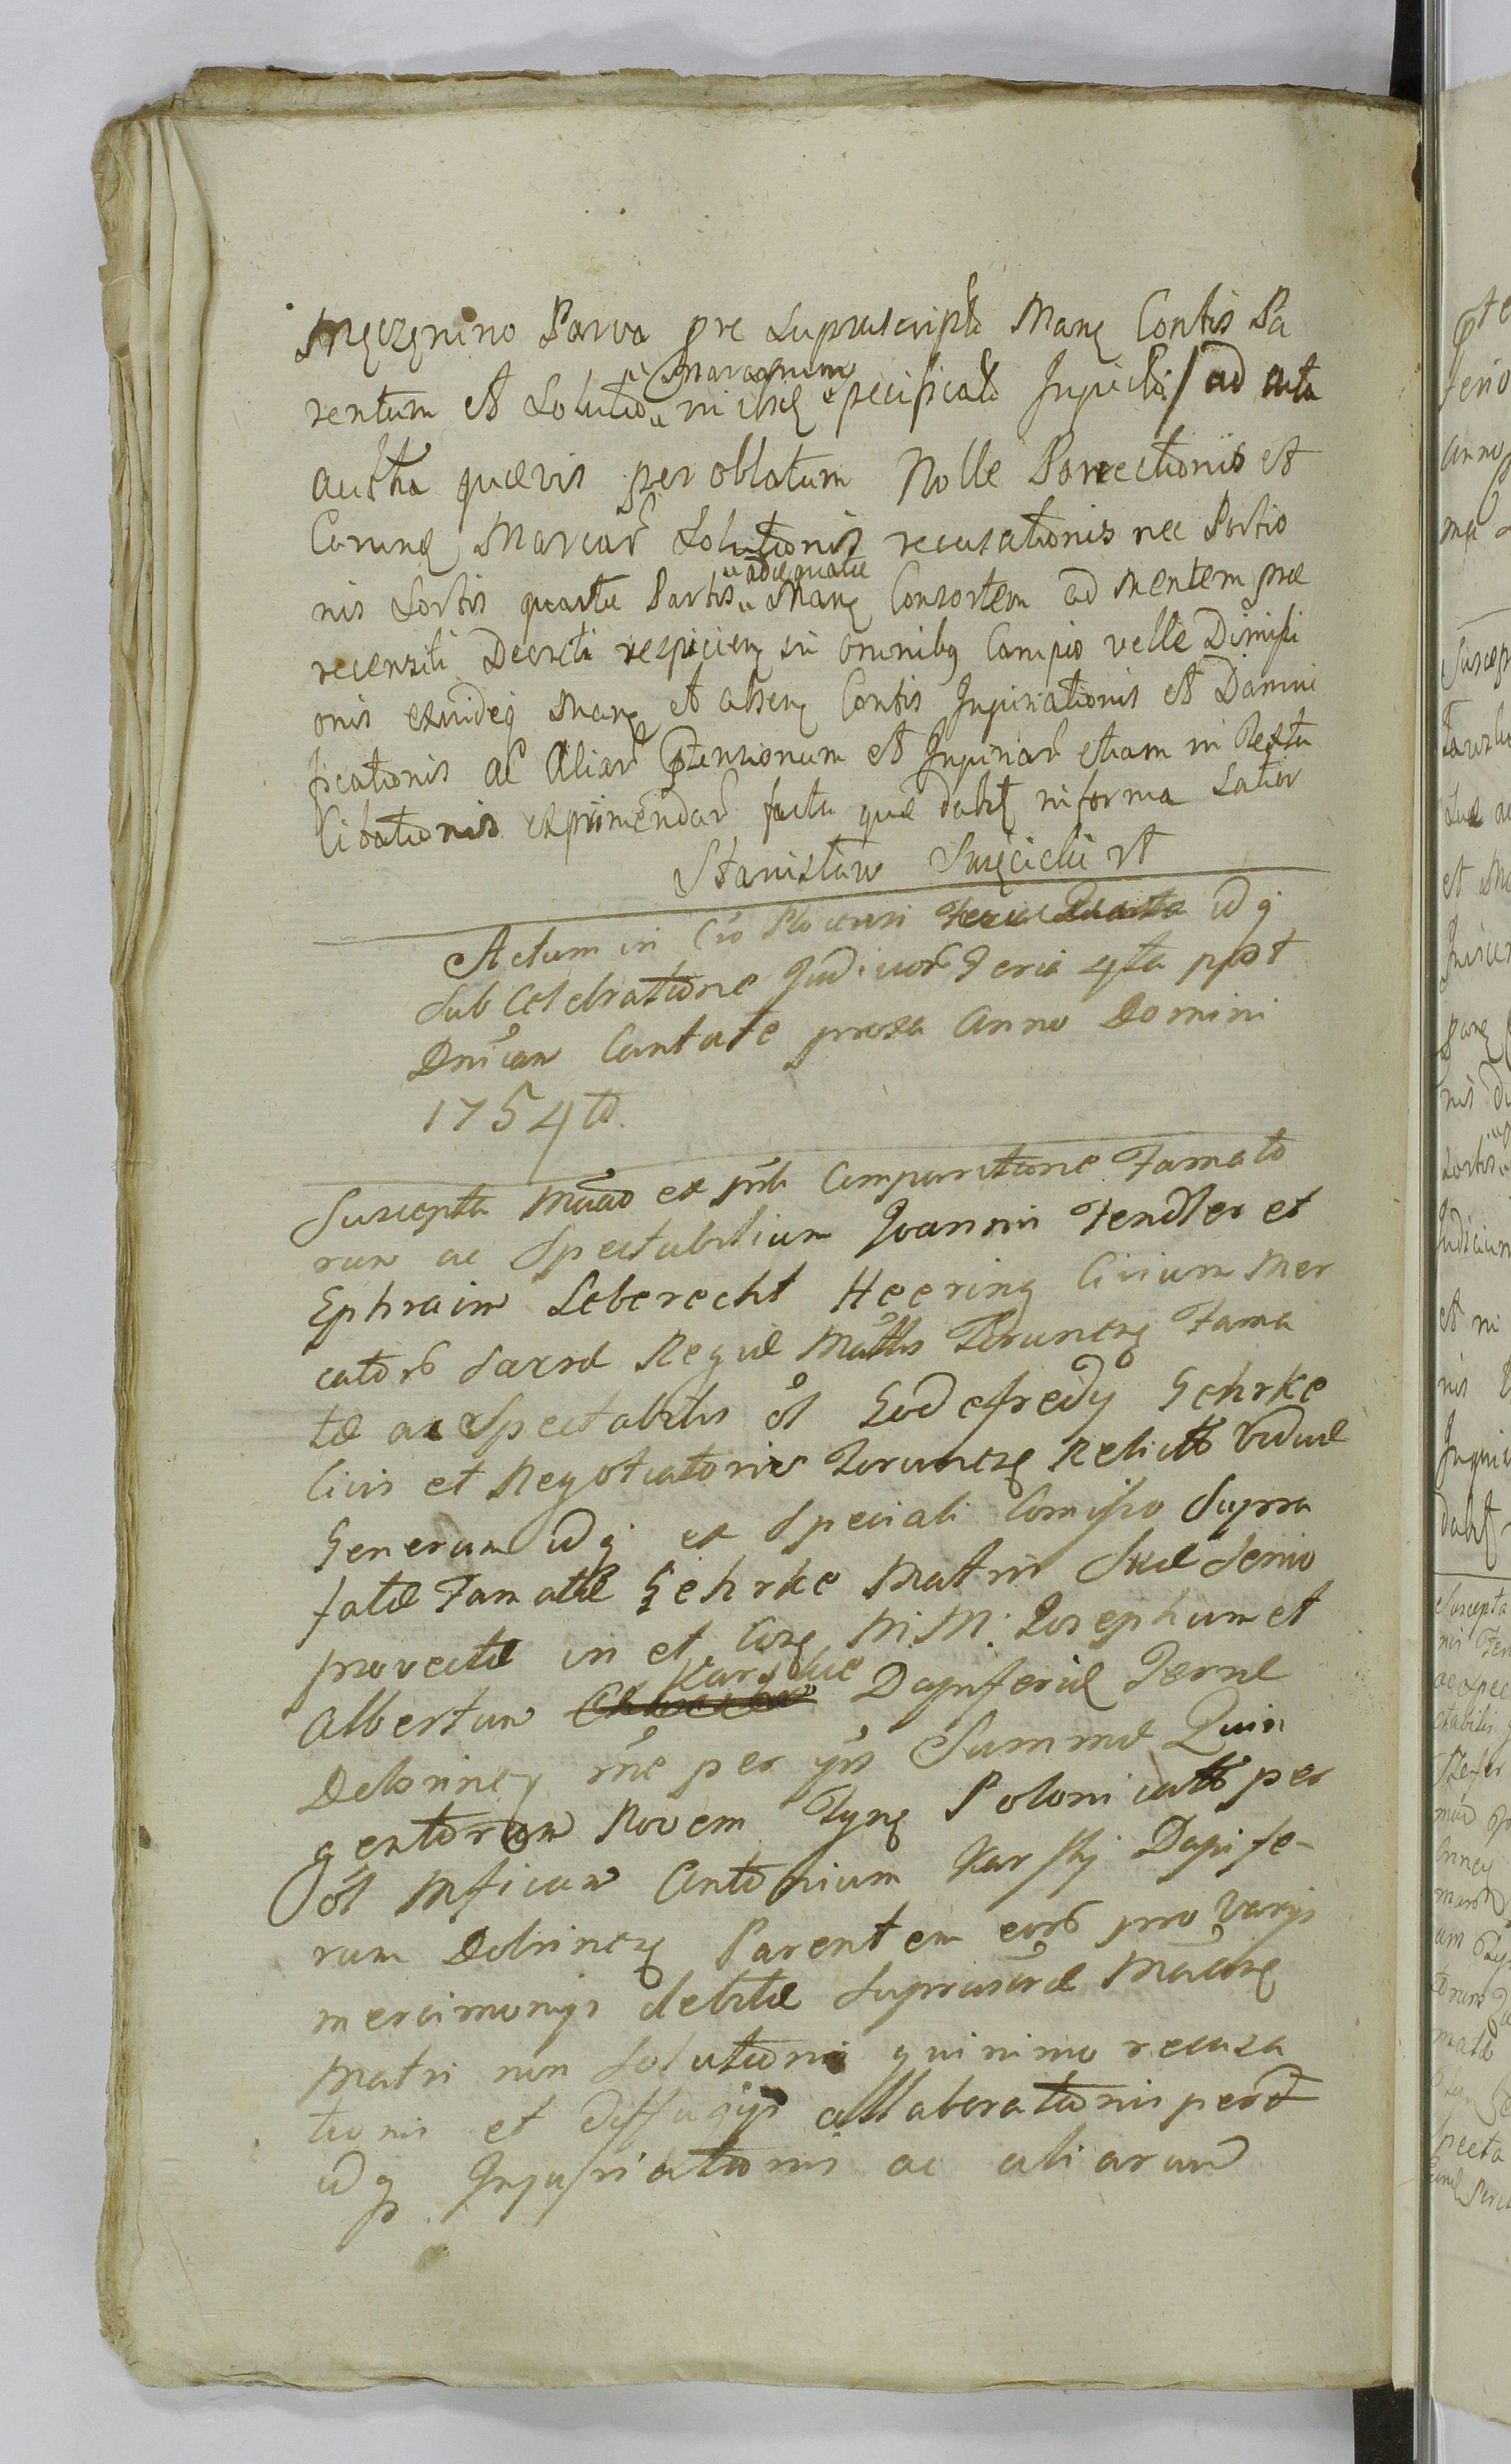 Męczęnino Parva pre Supruscripto Mane Contis Pa
rentum et Solutio Marcarum in ibiq specificato Inpicti / ad acta
authca quævis per oblatum Nolle Porrectionis et
Earunq Marcar Solutionis recusationis nec Portio
nis Sortis quartæ Partis adæquatæ Mane Consortem ad mentem præ
recensiti Decreti respicien in omnibq Campio velle Dimissi
onis exindeq Mane et absen Contis Injuriationis et Damni
ficationis ac Aliar Ptensionum et Injuriar etiam in Textu
Citationis exprimendar facta quæ dabit in forma Latior
Stanisław Święcicki rt
Actum in Cro Plocensi idq
Sub Celebratione Judicior Feria 4ta post
Dnicam Cantate proxa Anno Domini
1754to.
Suscepta Mand ex pnti Comparitione Famato
rum ac Spectabilium Joannis Fendler et
Ephraim Leberecht Heering Civium Mer
cator Sacræ Regiæ Mattis Torunens Fama
tæ ac Spectabilis ol Godefredy Gehrke
Civis et Negotiatoris Torunens Relictæ Viduæ
Generum idq ex Speciali Comisso Supra
fatæ Famatæ Gehrke Matris Suæ Senio
provectæ in et Cora M. M. Josephum et
Albertum Karskie Dapiferid Terræ
Dobrinen rne per ipos Summæ Quin
gentorum Novem Tynf Polonicalt per
ol Mficum Antonium Karskj Dapife-
rum Dobrinens Parentem eor pro varijs
mercimonijs debitæ Suprascræ Macæ
Matri non Solutionis quinimo recusa
tionis et Diffugijs allaborationis pert
idq Injuriationis ac aliarum